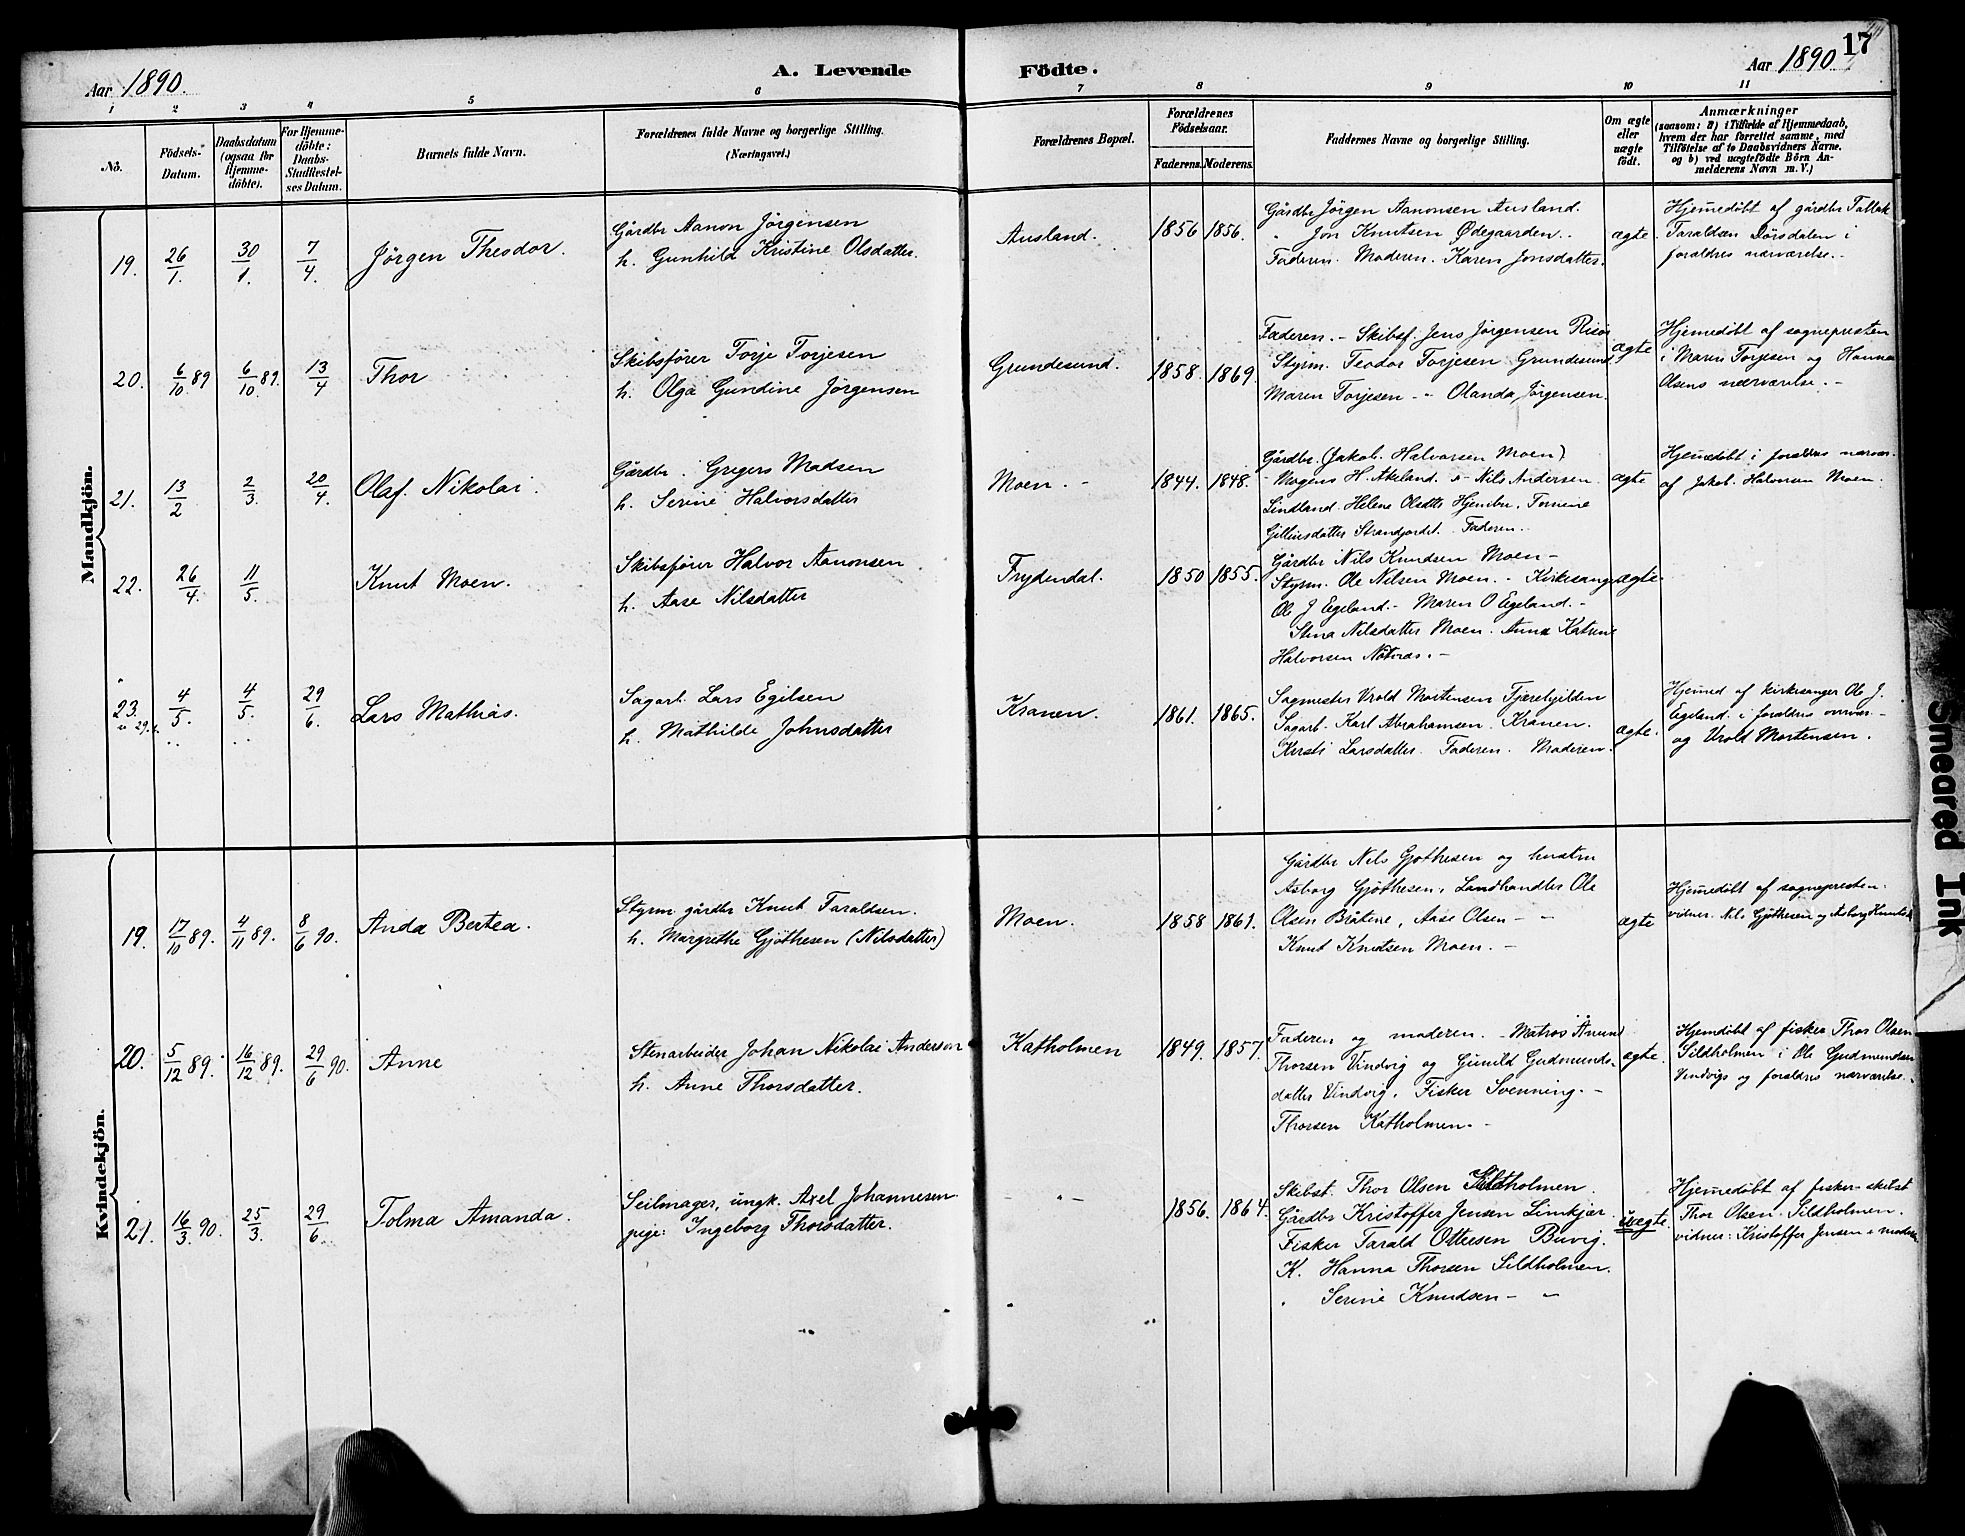 17
Aar 1890.
A. Levende
Födte.
Aar 1890.
1 2 3 4 5 6 7 8 9 10 11
No.
Födsels-
Datum.
Daabsdatum
(ogsaa for
Hjemme-
döbte).
For Hjemme-
döbte:
Daabs-
Stadfæstel-
ses Datum.
Barnets fulde Navn.
Forældrenes fulde Navne og borgerlige Stilling.
(Næringsvei.)
Forældrenes Bopæl.
Forældrenes
Födselsaar.
Faderens. Moderens.
Faddernes Navne og borgerlige Stilling.
Om ægte
eller
uægte
födt.
Anmærkninger
(saasom: a) i Tilfælde af Hjemmedaab,
hvem der har forrettet samme, med
Tilföielse af to Daabsvidners Navne.
og b) ved uægtefödte Börn An-
melderens Navn m. V.)
Mandkjön.
19. 26/1. 30/1. 7/4 Jörgen Theodor.
Gårdbr Aanon Jörgensen
h. Gunhild Kristine Olsdatter.
Ausland. 1856 1856.
Gårdbr Jörgen Aanonsen Ausland.
" Jon Knutsen Ødegaarden.
Faderen. Moderen. Karen Jonsdatter.
ægte.
Hjemedöbt af gårdbr Tallak
Taraldsen Dörsdalen i
foraldres nærværelse.-
20. 6/10 89 6/10 89. 13/4 Thor
Skibsförer Torje Torjesen
h. Olga Gundine Jörgensen
Grundesund. 1858. 1869.
Faderen. - Skibsf. Jens Jörgensen Risör
Styrm. Teodor Torjesen Grundesund
Maren Torjesen - " Olanda Jörgensen.
ægte
Hjemedöbt af sognepresten
i Maren Torjesen og Hanna
Olsens nærværelse. -
21. 13/2 2/3 20/4. Olaf Nikolai.
Gårdbr. Gregers Madsen
h. Serine Halvorsdatter
Moen. - 1844. 1848.
Gårdbr. (Jakob Halvorsen Moen)
- Mogens H. Akeland. - Nils Andersen
Lindland. Helene Olsdtr Hjembu. Tomine
Strandjordet. Faderen.
ægte
Hjemedöbt i foraldres nærvær.
af Jakob Halvorsen Moen.
22. 26/4. 11/5. Knut Moen.
Skibsförer Halvor Aanonsen
h. Aase Nilsdatter
Frydendal. 1850 1855.
Gårdbr Nils Knudsen Moen -
Styrm. Ole Nilsen Moen. - Kirkesanger
Ole J Egeland. - Maren O Egeland. -
Stina Nilsdatter Moen. Anna Katrine
Halvorsen. -
ægte.
23. 4/5. 4/5. 29/6. Lars Mathias.
Sagarb. Lars Egilsen
h. Mathilde Johnsdatter
Kranen. 1861. 1865.
Sagmester Vrold Mortensen Tjærehjelden
Sagarb. Karl Abrahamsen Kranen.
Kirsti Larsdatter. Faderen. Moderen.
ægte.
Hjemed af kirkesanger Ole J.
Egeland. i foraldres -
og Vrold Mortensen.
Kvindekjön.
19. 17/10 89. 4/11 89. 8/6 90. Anda Bertea.
Styrm. gårdbr Knut Taraldsen.
h. Margrethe Gjöthesen (Nilsdatter)
Moen. 1858 1861.
Gårdbr Nils Gjöthesen og hustru
Asborg Gjöthesen, Landhandler Ole
Olsen Bråtene, Aase Olsen - "
Knut Knutsen Moen. -
ægte
Hjemedöbt af sognepresten.
vidner. Nils Gjöthesen og Asborg Knutsd.
20. 5/12 89. 16/12 89. 29/6 90. Anne
Stenarbeider Johan Nikolai Anderson
h. Anne Thorsdatter.
Katholmen 1849. 1857.
Faderen og moderen. - Matros Anund
Thorsen Vindvig og Gunild Gudmunds-
datter Vindvig. Fisker Svenning. -
Thorsen Katholmen. -
ægte.
Hjemdöbt af fisker Thor Olsen
Sildholmen i Ole Gudmundsen
Vindvigs og foraldres nærværelse.
21. 16/3. 90. 25/3. 29/6 Tolma Amanda.
Seilmager, ungk. Axel Johannesen
pige: Ingeborg Thorsdatter.
- " - 1856. 1864.
Skibst. Thor Olsen Sildholmen
Gårdbr Kristoffer Jensen Limkjær.
Fisker Tarald Ottersen Buvig.
K. Hanna Thorsen Sildholmen.
" Serine Knudsen - "
uægte.
Hjemedöbt af fisker-skibst
Thor Olsen Sildholmen.
vidner: Kristoffer Jensen & moderen
Smeared Ink